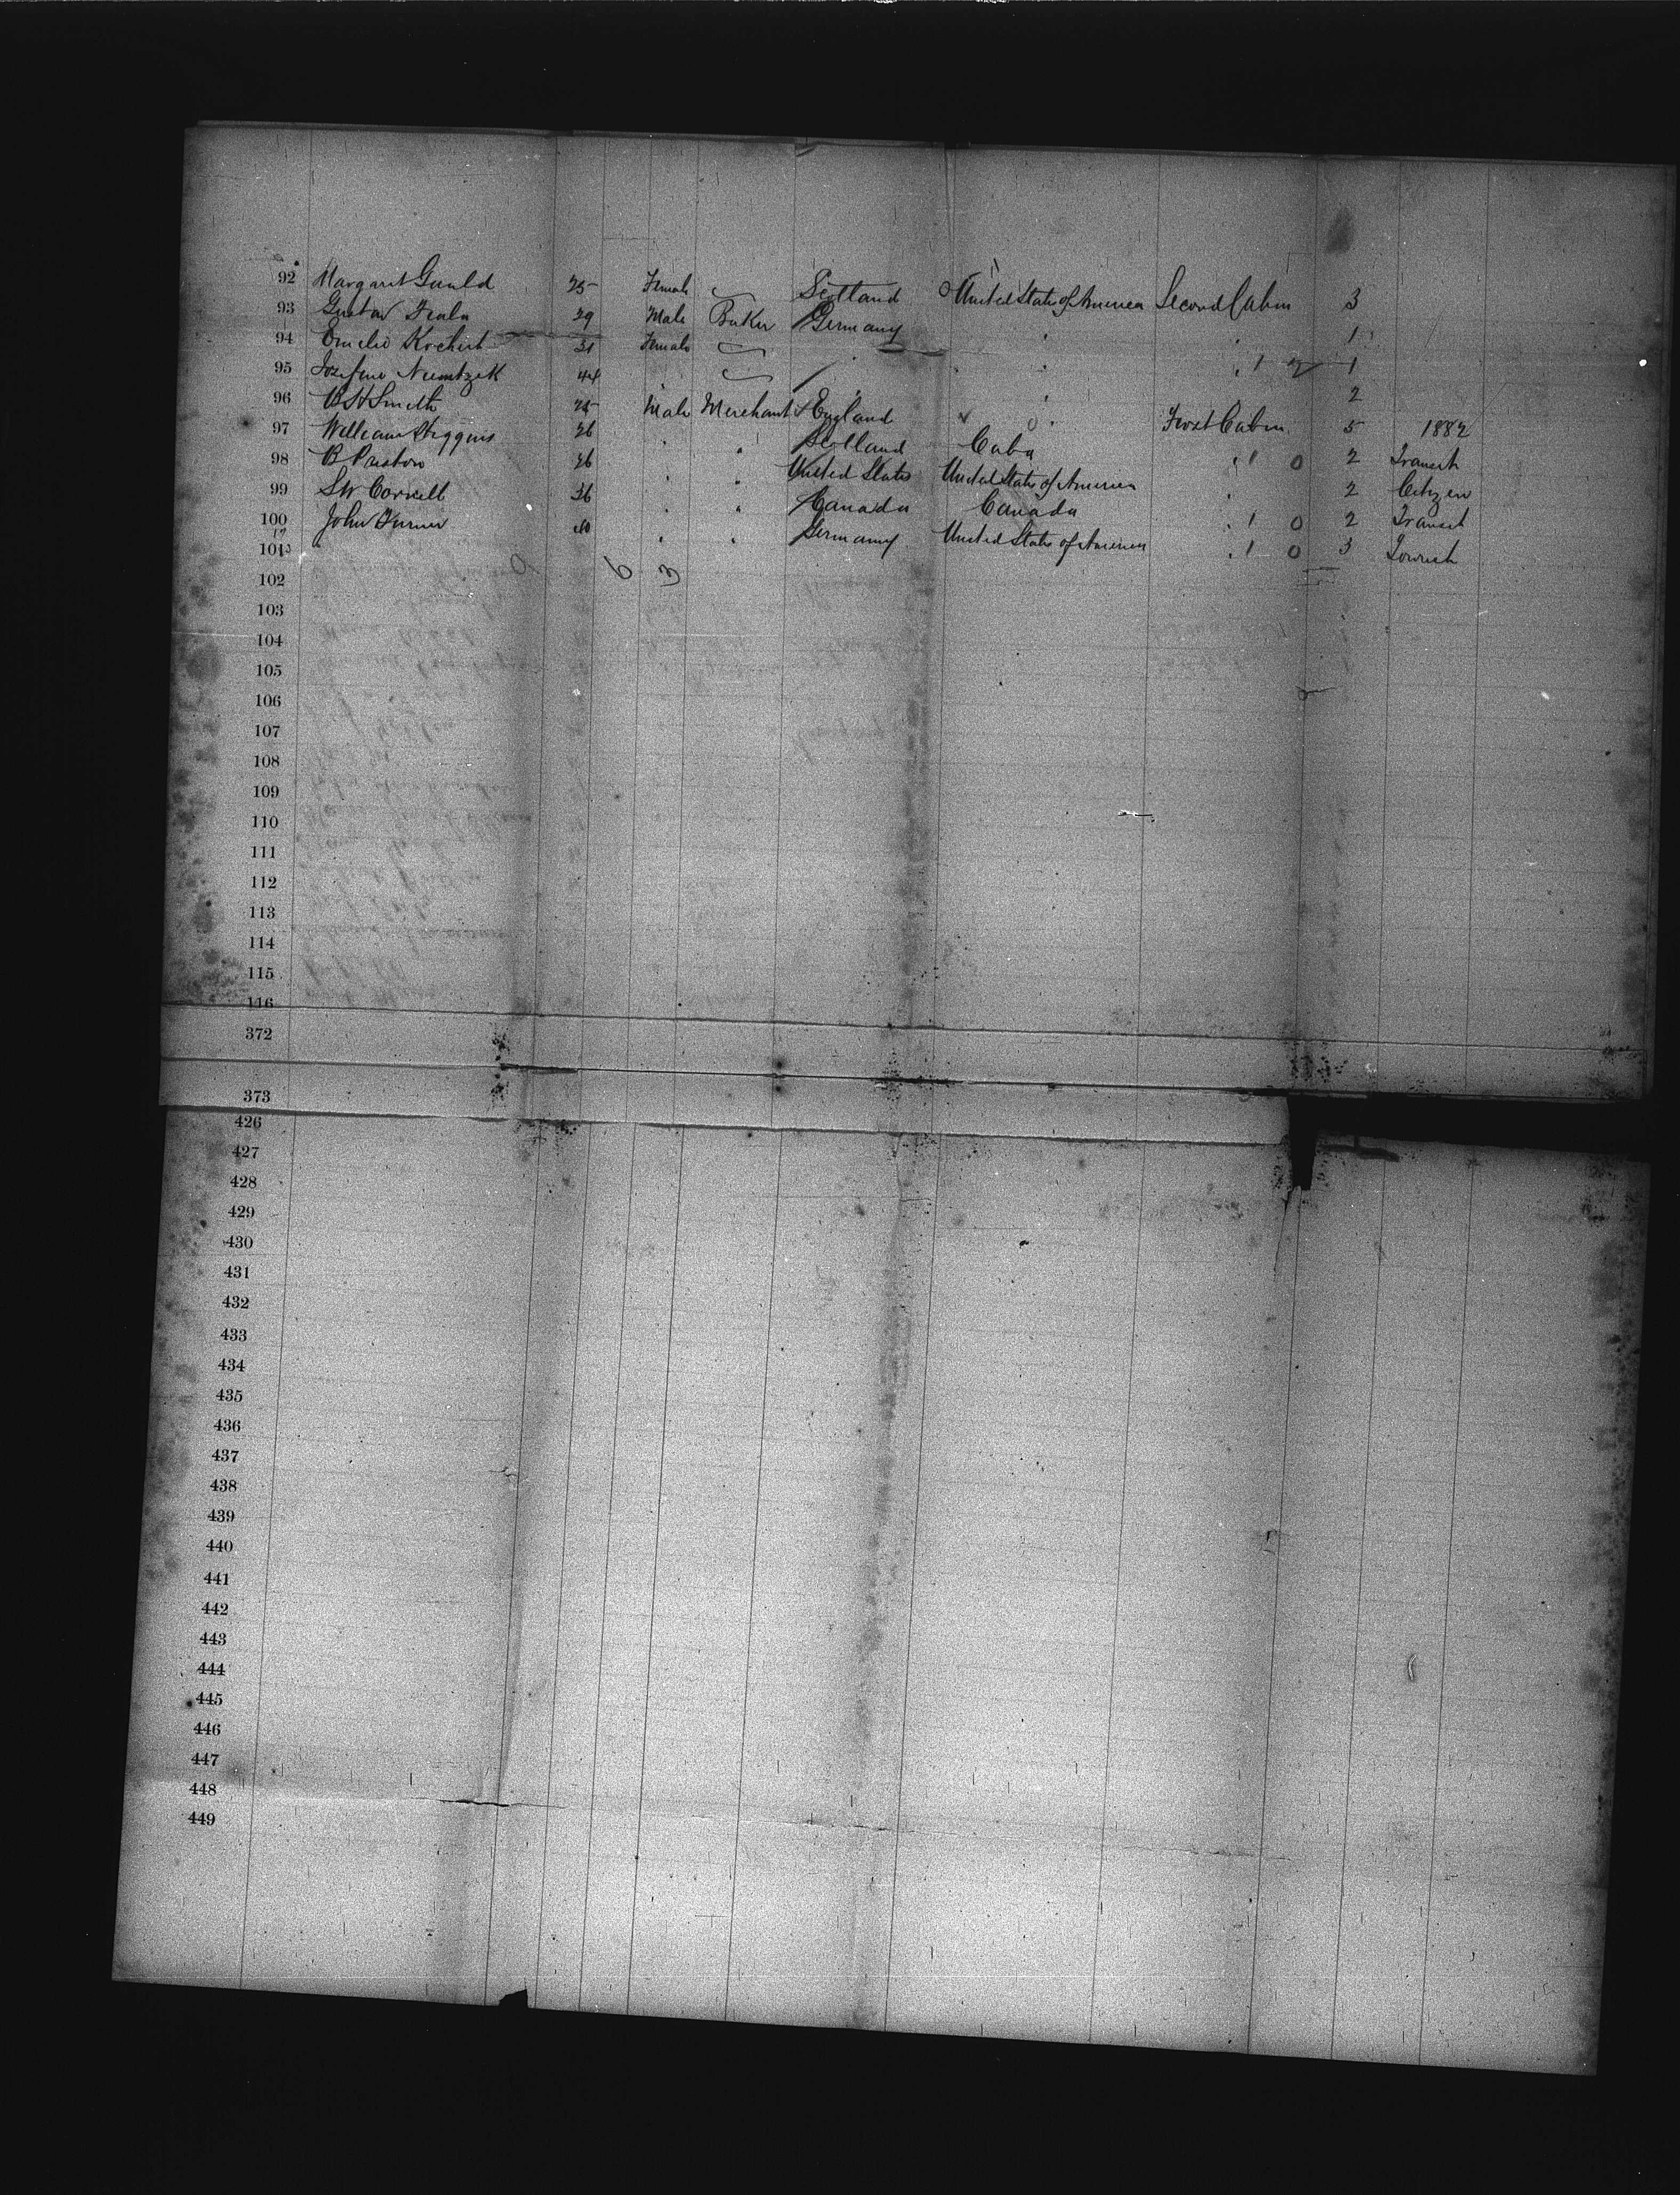 92 Margaret Gauld 25 Female Scotland United States of America Second Cabin 3
93 Gustav 29 Male Baker Germany " " 1
94 Emelie Kochert 31 Female " " " 1 2 1
95 Josefine Niemtzek 44 " " " " 2
96 B H Smith 25 Male Merchant England " 0 First Cabin 5 1882
97 William Higgins 26 " " Scotland Cuba " 1 0 2 Transit
98 B Preston 26 " " United States United States of America " 2 Citizen
99 S W Cornell 36 " " Canada Canada " 1 0 2 Transit
100 John Turner 40 " " Germany United States of America " 1 0 3 Tourist
101
102 9 6 3
103
104
105
106
107
108
109
110
111
112
113
114
115
116
372
373
426
427
428
429
430
431
432
433
434
435
436
437
438
439
440
441
442
443
444
445
446
447
448
449